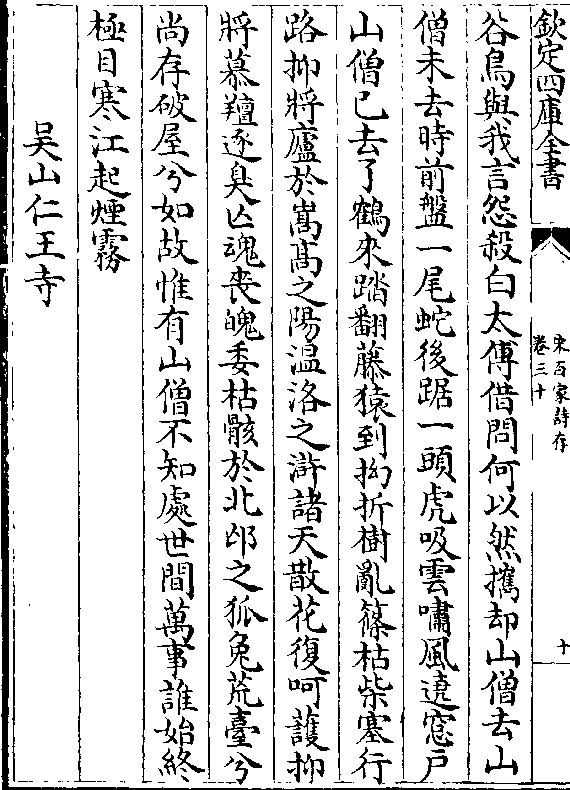 欽定四庫全書
宋百家詩存
卷三十
十
谷鳥與我言怨殺白太傅借問何以然攜却山僧去山
僧未去時前盤一尾蛇後踞一頭虎吸雲嘯風遶窓戶
山僧已去了鶴來踏翻藤猿到拗折樹亂篠枯柴塞行
路抑將廬於嵩髙之陽温洛之滸諸天散花復呵護抑
將慕羶逐臭亡魂喪魄委枯骸於北邙之狐兔荒臺兮
尚存破屋兮如故惟有山僧不知處世間萬事誰始終
極目寒江起煙霧
吴山仁王寺